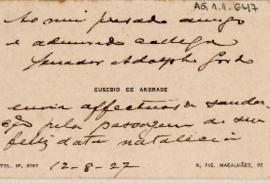 AG.1.1.647
Ao meu presado amigo
e admirado collega
Senador Adolpho Gordo
EUSEBIO DE ANDRADE
envia affectuosas sauda
ções pela passagem de sua
feliz data natalicia
TEL. IP.
12-8-27
R. FIG. MAGALHÃES,